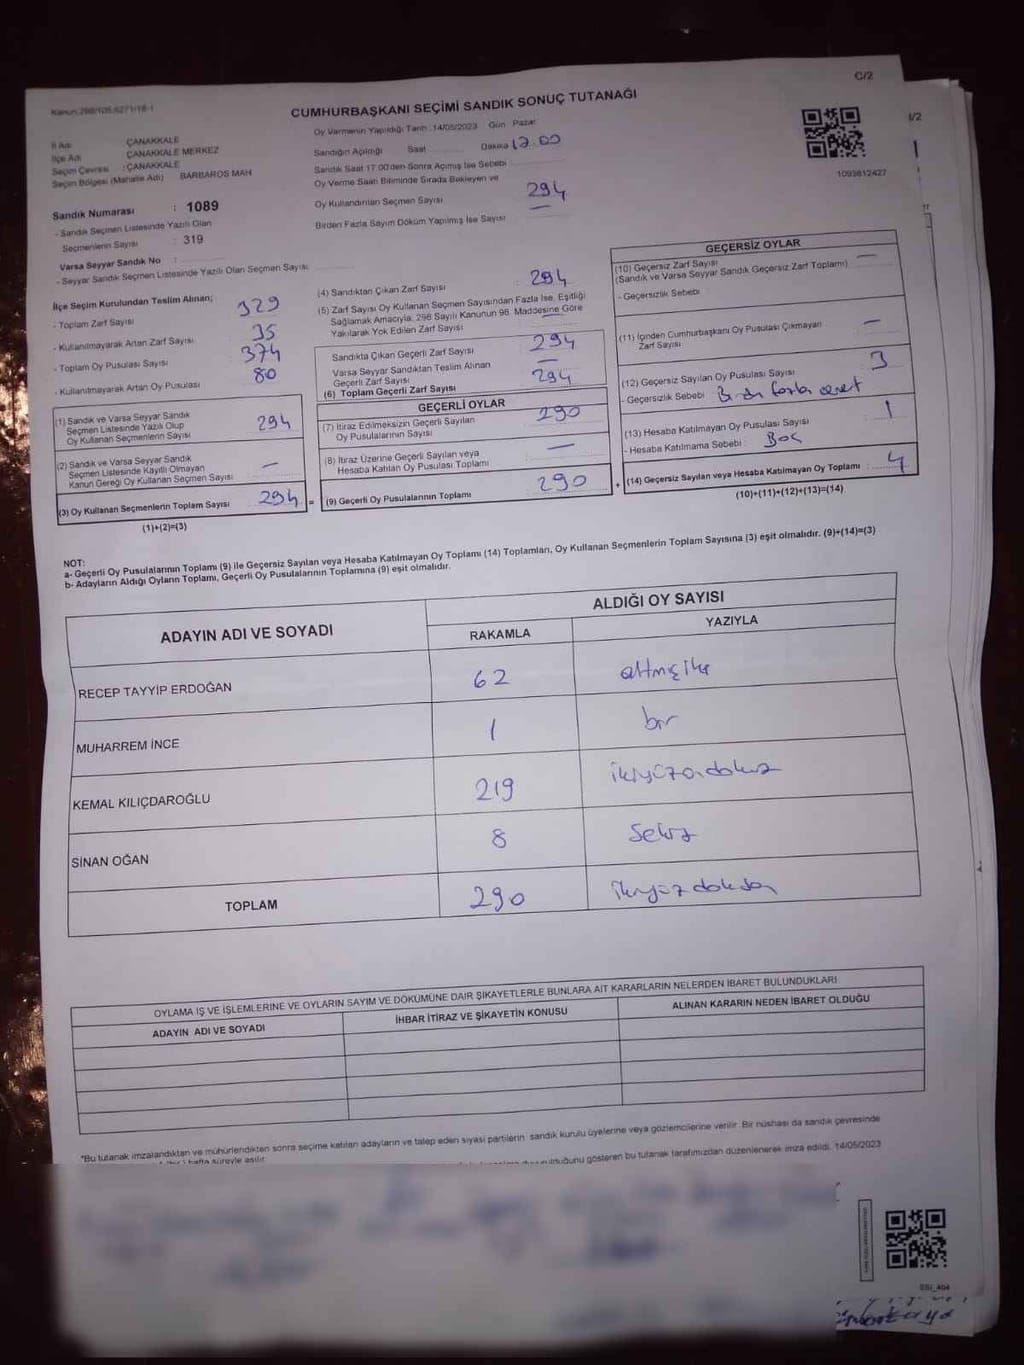 C/2
Kanun:298/105,6271/18-1
CUMHURBAŞKANI SEÇİMİ SANDIK SONUÇ TUTANAĞI
İl Adı : ÇANAKKALE
İlçe Adı : ÇANAKKALE MERKEZ
Seçim Çevresi : ÇANAKKALE
Seçim Bölgesi (Mahalle Adı) BARBAROS MAH
Sandık Numarası : 1089
- Sandık Seçmen Listesinde Yazılı Olan
Seçmenlerin Sayısı : 319
Varsa Seyyar Sandık No :
- Seyyar Sandık Seçmen Listesinde Yazılı Olan Seçmen Sayısı
Oy Vermenin Yapıldığı Tarih : 14/05/2023 Gün : Pazar
Sandığın Açıldığı Saat Dakika 17.00
Sandık Saat 17:00'den Sonra Açılmış İse Sebebi
Oy Verme Saati Bitiminde Sırada Bekleyen ve
Oy Kullandırılan Seçmen Sayısı 294
Birden Fazla Sayım Döküm Yapılmış İse Sayısı —
1093812427
İlçe Seçim Kurulundan Teslim Alınan;
- Toplam Zarf Sayısı 329
- Kullanılmayarak Artan Zarf Sayısı 35
- Toplam Oy Pusulası Sayısı 374
- Kullanılmayarak Artan Oy Pusulası 80
(1) Sandık ve Varsa Seyyar Sandık
Seçmen Listesinde Yazılı Olup
Oy Kullanan Seçmenlerin Sayısı 294
(2) Sandık ve Varsa Seyyar Sandık
Seçmen Listesinde Kayıtlı Olmayan
Kanun Gereği Oy Kullanan Seçmen Sayısı —
(3) Oy Kullanan Seçmenlerin Toplam Sayısı 294 =
(1)+(2)=(3)
(4) Sandıktan Çıkan Zarf Sayısı 294
(5) Zarf Sayısı Oy Kullanan Seçmen Sayısından Fazla İse, Eşitliği
Sağlamak Amacıyla; 298 Sayılı Kanunun 98. Maddesine Göre
Yakılarak Yok Edilen Zarf Sayısı —
Sandıkta Çıkan Geçerli Zarf Sayısı 294
Varsa Seyyar Sandıktan Teslim Alınan
Geçerli Zarf Sayısı —
(6) Toplam Geçerli Zarf Sayısı 294
GEÇERLİ OYLAR
(7) İtiraz Edilmeksizin Geçerli Sayılan
Oy Pusulalarının Sayısı 290
(8) İtiraz Üzerine Geçerli Sayılan veya
Hesaba Katılan Oy Pusulası Toplamı —
(9) Geçerli Oy Pusulalarının Toplamı 290 +
GEÇERSİZ OYLAR
(10) Geçersiz Zarf Sayısı —
(Sandık ve Varsa Seyyar Sandık Geçersiz Zarf Toplamı)
- Geçersizlik Sebebi
(11) İçinden Cumhurbaşkanı Oy Pusulası Çıkmayan
Zarf Sayısı —
(12) Geçersiz Sayılan Oy Pusulası Sayısı 3
- Geçersizlik Sebebi Birden fazla evet
(13) Hesaba Katılmayan Oy Pusulası Sayısı 1
- Hesaba Katılmama Sebebi Boş
(14) Geçersiz Sayılan veya Hesaba Katılmayan Oy Toplamı : 4
(10)+(11)+(12)+(13)=(14)
NOT:
a- Geçerli Oy Pusulalarının Toplamı (9) ile Geçersiz Sayılan veya Hesaba Katılmayan Oy Toplamı (14) Toplamları, Oy Kullanan Seçmenlerin Toplam Sayısına (3) eşit olmalıdır. (9)+(14)=(3)
b- Adayların Aldığı Oyların Toplamı, Geçerli Oy Pusulalarının Toplamına (9) eşit olmalıdır.
ADAYIN ADI VE SOYADI
ALDIĞI OY SAYISI
RAKAMLA YAZIYLA
RECEP TAYYİP ERDOĞAN 62 altmışiki
MUHARREM İNCE 1 bir
KEMAL KILIÇDAROĞLU 219 ikiyüzondokuz
SİNAN OĞAN 8 Sekiz
TOPLAM 290 ikiyüzdoksan
OYLAMA İŞ VE İŞLEMLERİNE VE OYLARIN SAYIM VE DÖKÜMÜNE DAİR ŞİKAYETLERLE BUNLARA AİT KARARLARIN NELERDEN İBARET BULUNDUKLARI
ADAYIN ADI VE SOYADI İHBAR İTİRAZ VE ŞİKAYETİN KONUSU ALINAN KARARIN NEDEN İBARET OLDUĞU
*Bu tutanak imzalandıktan ve mühürlendikten sonra seçime katılan adayların ve talep eden siyasi partilerin sandık kurulu üyelerine veya gözlemcilerine verilir. Bir nüshası da sandık çevresinde
hafta süreyle asılır.
gösteren bu tutanak tarafımızdan düzenlenerek imza edildi. 14/05/2023